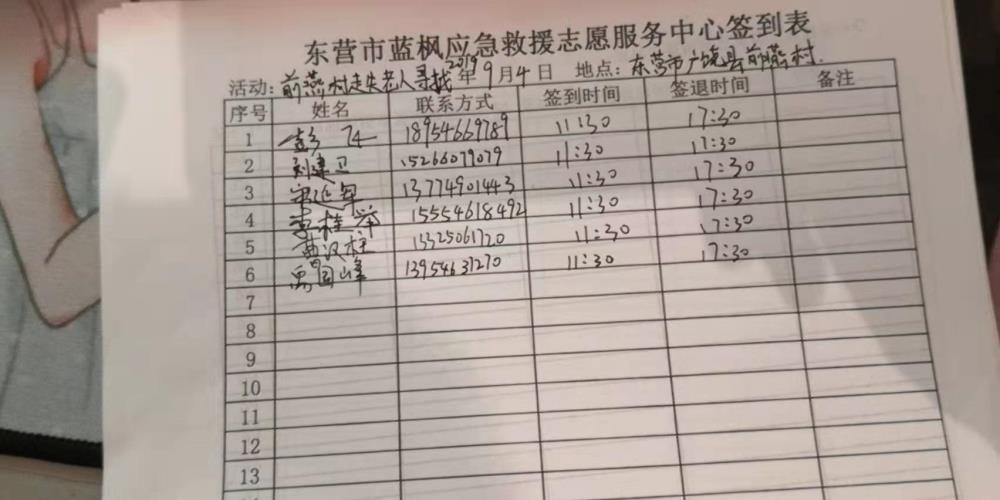 东营市蓝枫应急救援志愿服务中心签到表
活动：前燕村走失老人寻找 2019年9月4日 地点：东营市广饶县前燕村.
序号 姓名 联系方式 签到时间 签退时间 备注
1 彭飞 18954669789 11:30 17:30
2 刘建卫 15266079079 11:30 17:30
3 宋延军 13774901443 11:30 17:30
4 李桂举 15554618492 11:30 17:30
5 曹汉柱 15325061720 11:30 17:30
6 国峰 13954637270 11:30 17:30
7
8
9
10
11
12
13